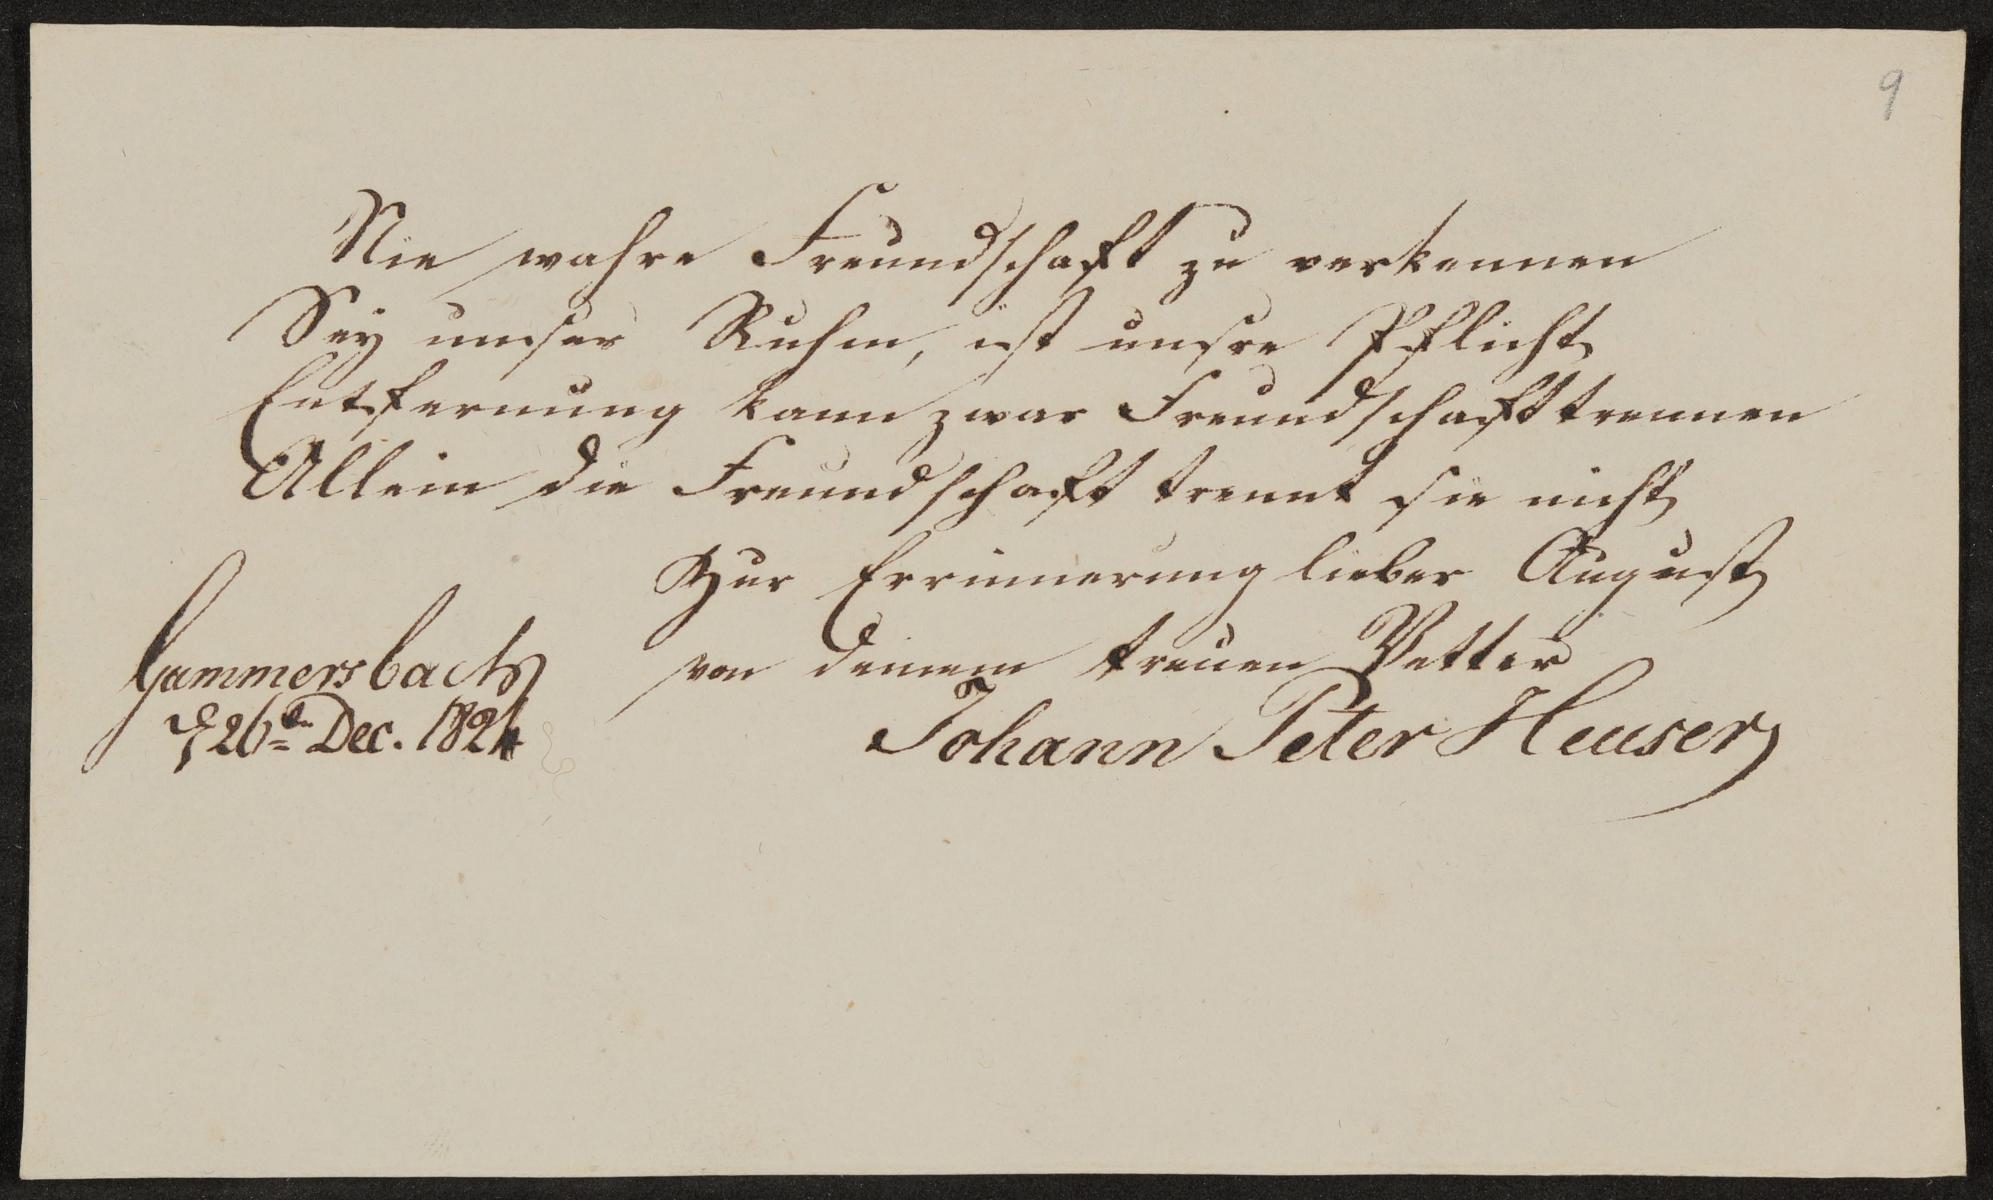 9
Nie wahre Freundschaft zu verkennen
Sey unser Ruhm, ist unsre Pflicht
Entfernung kann zwar Freundschaft trennen
Allein die Freundschaft trennt sie nicht
Zur Errinnerung lieber August
von deinem treuen Vetter
Johann Peter Heuser
Gummersbach
d 26ten Dec. 1824